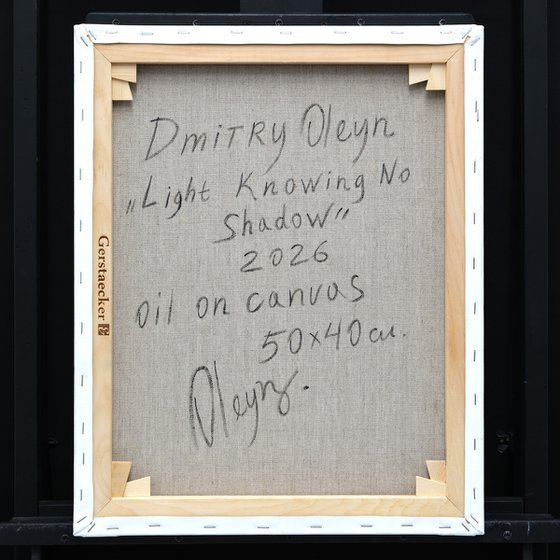 Dmitry Oleyn
„Light Knowing No
Shadow"
2026
oil on canvas
50x40 см.
Oleyn.
Gerstaecker